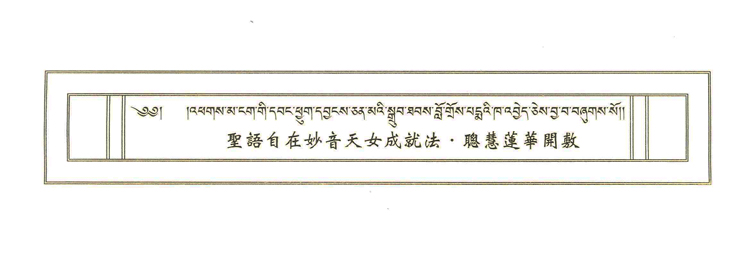 ༄༅། །འཕགས་མ་ངག་གི་དབང་ཕྱུག་དབྱངས་ཅན་མའི་སྒྲུབ་ཐབས་བློ་གྲོས་པདྨའི་ཁ་འབྱེད་ཅེས་བྱ་བ་བཞུགས་སོ།།
聖語自在妙音天女成就法·聰慧蓮華開敷